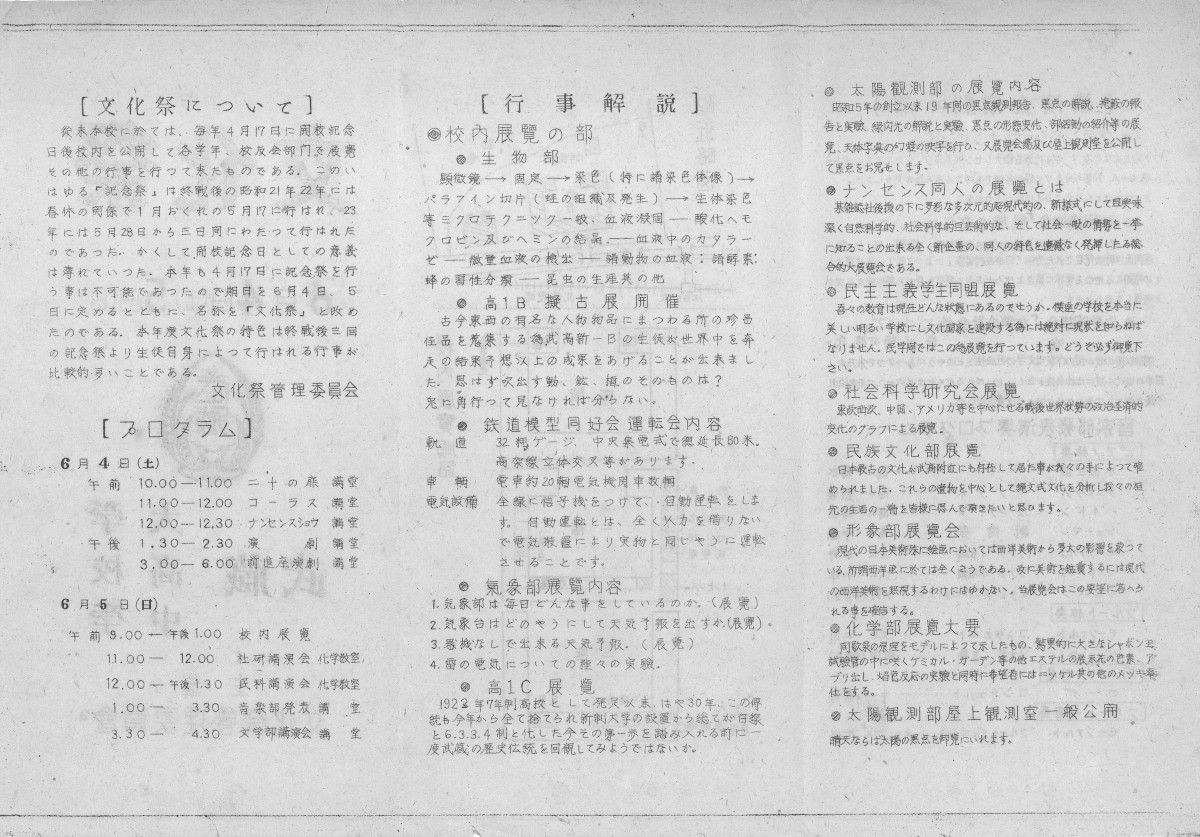 [文化祭について]
従来本校に於ては、毎年4月17日に開校記念
日後校内を公開して各学年、校友会部門で展覧
その他の行事を行つて来たものである。このい
はゆる「記念祭」は終戦後の昭和21年22年には
春休の関係で1月おくれの5月17に行はれ、23
年には5月28日から三日間にわたつて行はれた
のであつた。かくして開校記念日としての意義
は薄れていつた。本年も4月17日に記念祭を行
う事は不可能であつたので期日を6月4日、5
日に定めるとともに、名称を「文化祭」と改め
たのである。本年度文化祭の特色は終戦後三回
の記念祭より生徒自身によつて行はれる行事が
比較的多いことである。
文化祭管理委員会
[プログラム]
6月4日(土)
午前 10.00—11.00 二十の扉 講堂
11.00—12.00 コーラス 講堂
12.00—12.30 ナンセンスショウ 講堂
午後 1.30—2.30 演劇 講堂
3.00—6.00 前進座演劇 講堂
6月5日(日)
午前 9.00—午後1.00 校内展覧
11.00—12.00 社研講演会 化学教室
12.00—午後1.30 民科講演会 化学教室
1.00—3.30 音楽部発表 講堂
3.30—4.30 文学部講演会 講堂
[行事解説]
校内展覧の部
生物部
顕微鏡→固定→染色(特に諸染色体像)→
パラフイン切片(蛙の組織及発生)→生体染色
等ミクロテクニツク一般、血液凝固—酸化ヘモ
クロビン及びヘミンの結晶—血液中のカタラー
ゼ—微量血液の検出—諸動物の血液:諸酵素:
蜂の習性分類—昆虫の生涯其の他
高1B 擬古展開催
古今東西の有名な人物物品にまつわる所の珍品
佳品を蒐集する為武高新一Bの生徒が世界中を奔
走の結果予想以上の成果をあげることが出来まし
た。思はず吹出す動、鉱、植のそのものは?
兎に角行つて見なければ分らない。
鉄道模型同好会運転会内容
軌道 32粍ゲージ、中央集電式で總延長80米。
高架線立体交叉等があります.
車輌 電車約20輌電気機関車数輌
電気設備 全線に信号機をつけて、自動運転をしま
す。自動運転とは、全く外力を借りない
で電気装置により実物と同じやうに運転
させることです。
氣象部展覧内容
1.気象部は毎日どんな事をしているのか。(展覧)
2.気象台はどのやうにして天気予報を出すか(展覧)。
3.器械なしで出来る天気予報。(展覧)
4.雷の電気についての種々の実験。
高1C 展覧
1922年7年制高校として発足以来、はや30年、この傳
統も今年から全て捨てられ新制大学の設置から總てが白線
と6.3.3.4制と化した今その第一歩を踏み入れる前に一
度武蔵の歴史伝統を回顧してみようではないか。
太陽観測部の展覧内容
昭和5年の創立以来19年間の黒点観測報告、黒点の解説、掩蔽の報
告と実験、緑閃光の解説と実験、黒点の形態変化、部活動の紹介等の展
覧、天体写真の幻燈の映写を行ひ、又展覧会場及び屋上観測室を公開し
て黒点をお見せします。
ナンセンス同人の展覽とは
某雑誌社後援の下に多彩なる次元的超現代的の、新様式にして且興味
深く自然科学的、社会科学的且芸術的な、そして社会一般の情勢を一挙
に知ることの出来る全く新企画の、同人の特色を遺憾なく発揮したる綜
合的大展覧会である。
民主主義学生同盟展覧
吾々の教育は現在どんな状態にあるのでせうか。僕達の学校を本当に
美しい明るい学校にし文化国家を建設する為には絶対に現状を知らねば
なりません。民学同ではこの為展覧を行つています。どうぞ必ず御覧下
さい。
社会科学研究会展覧
東欧四政、中国、アメリカ等を中心とせる戦後世界状勢の政治至済的
変化のグラフによる展覧。
民族文化部展覧
日本最古の文化が武蔵附近にも存在して居た事が我々の手によつて確
められました。これらの遺物を中心として縄文式文化を分析し我々の祖
元の生活の一端を皆様に偲んで頂きたいと思ひます。
形象部展覧会
現代の日本美術殊に絵画においては西洋美術から多大の影響を蒙つて
いる。所謂西洋画に於ては全くさうである。故に美術を鑑賞するには現代
の西洋美術を無視するわけにはゆかない。当展覧会はこの要望に答へら
れる事を確信する。
化学部展覧大要
間歇泉の原理をモデルによつて示したもの、驚異的に大きなシャボン玉
試験管の中に咲くケミカル・ガーデン等の他エステルの展示花の色素、ア
ブリ出し、焔色反応の実験と同時に希望者にはニッケル其の他のメッキ奉
仕をする。
太陽観測部屋上観測室一般公開
晴天ならば太陽の黒点を御覧にいれます。